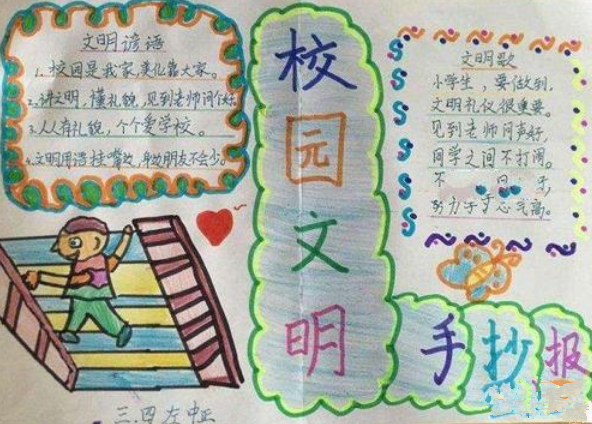 文明谚语
1.校园是我家,美化靠大家。
2.讲文明,懂礼貌,见到老师问个好
3.人人有礼貌,个个爱学校。
4.文明用语挂嘴边,身边朋友不会少。
校园文明
手抄报
文明歌
小学生,要做到,
文明礼仪很重要。
见到老师问声好,
同学之间不打闹。
不
努力学习
三.四